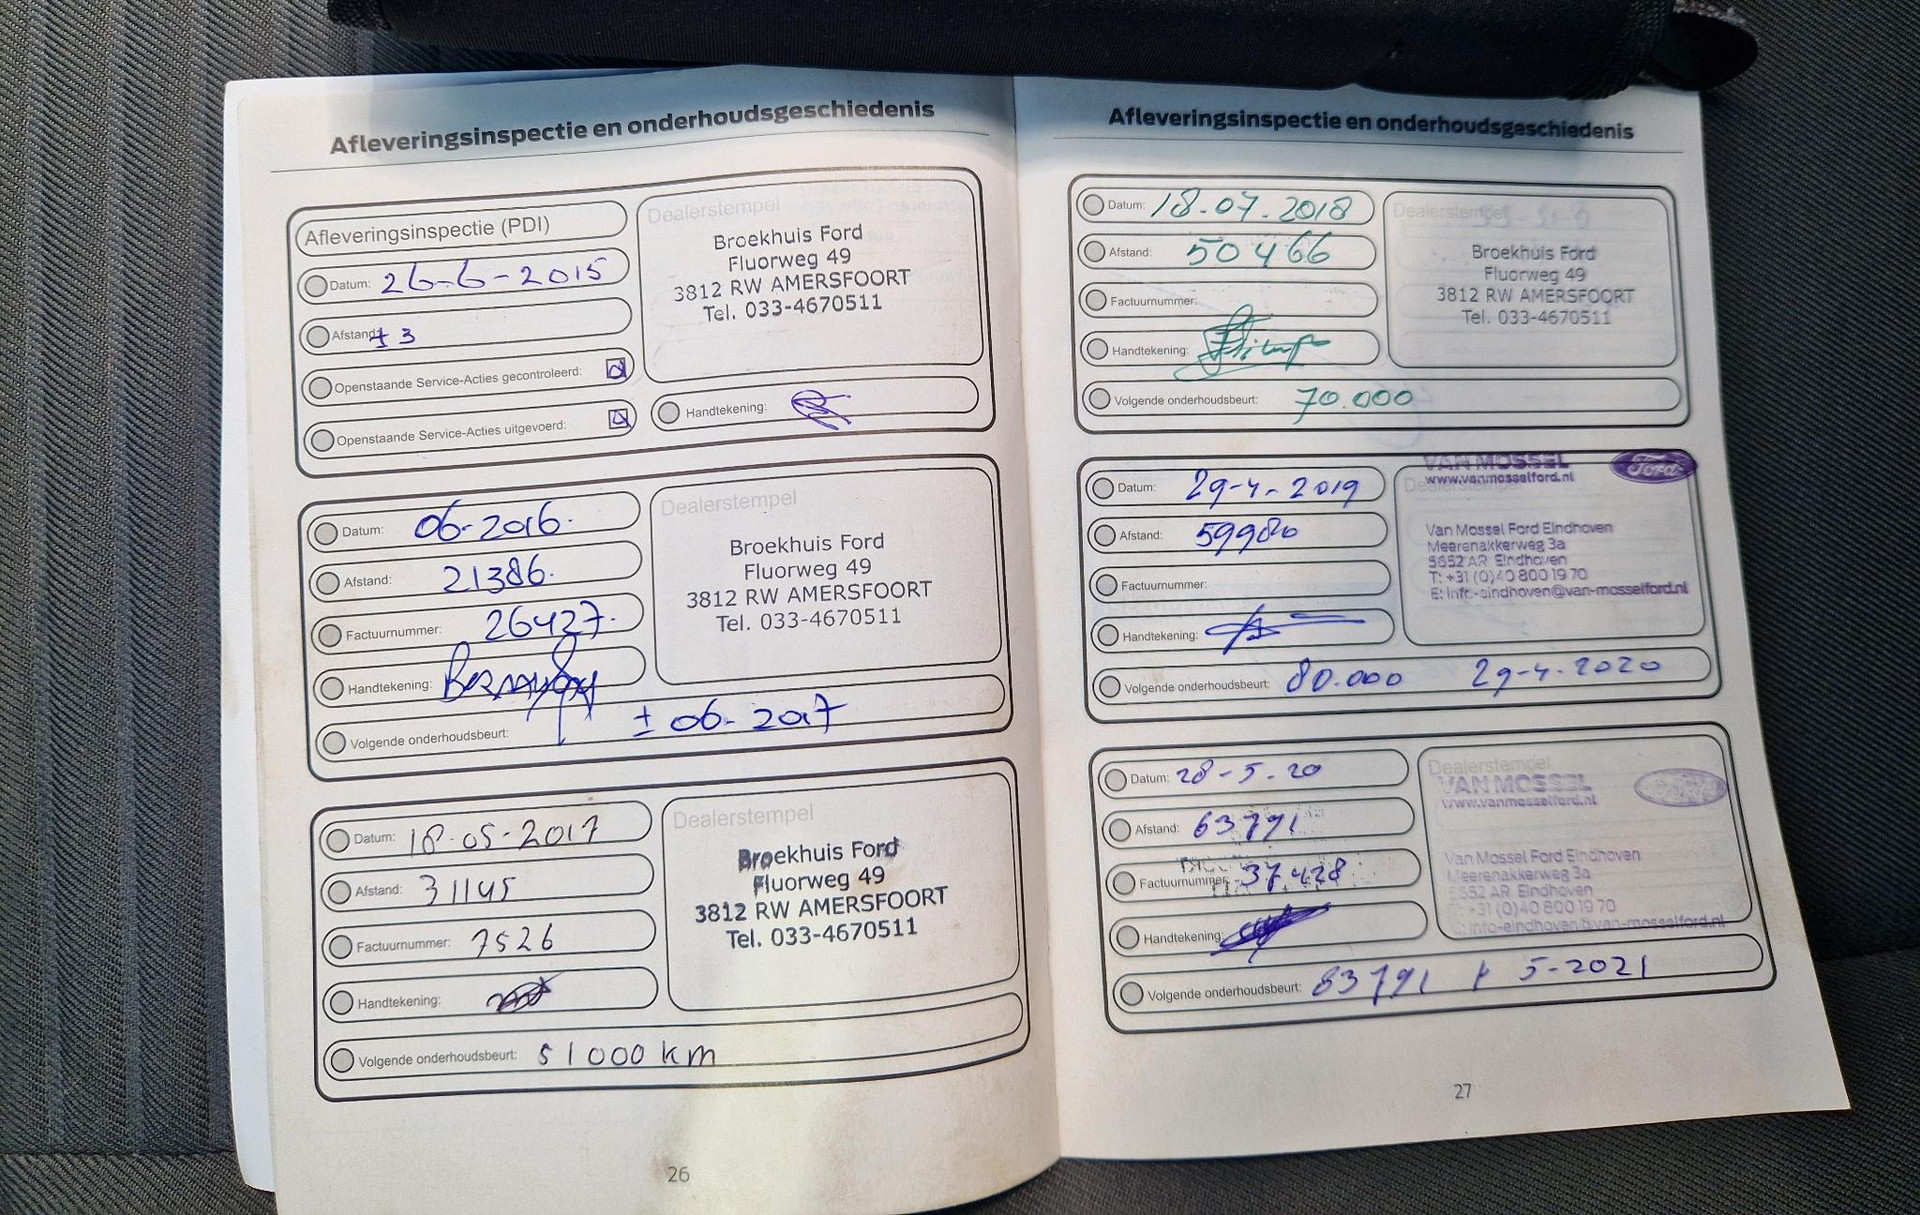 Afleveringsinspectie en onderhoudsgeschiedenis
Afleveringsinspectie (PDI)
Datum: 26-6-2015
Afstand: ± 3
Openstaande Service-Acties gecontroleerd:
Openstaande Service-Acties uitgevoerd:
Dealerstempel
Broekhuis Ford
Fluorweg 49
3812 RW AMERSFOORT
Tel. 033-4670511
Handtekening:
Datum: 06-2016.
Afstand: 21386.
Factuurnummer: 26427.
Handtekening:
Volgende onderhoudsbeurt: ± 06-2017
Dealerstempel
Broekhuis Ford
Fluorweg 49
3812 RW AMERSFOORT
Tel. 033-4670511
Datum: 18-05-2017
Afstand: 31145
Factuurnummer: 7526
Handtekening:
Volgende onderhoudsbeurt: 51000 km
Dealerstempel
Broekhuis Ford
Fluorweg 49
3812 RW AMERSFOORT
Tel. 033-4670511
26
Afleveringsinspectie en onderhoudsgeschiedenis
Datum: 18.07.2018
Afstand: 50466
Factuurnummer:
Handtekening:
Volgende onderhoudsbeurt: 70.000
Dealerstempel
Broekhuis Ford
Fluorweg 49
3812 RW AMERSFOORT
Tel. 033-4670511
Datum: 29-4-2019
Afstand: 59980
Factuurnummer:
Handtekening:
Volgende onderhoudsbeurt: 80.000 29-4-2020
Dealerstempel
VAN MOSSEL
www.vanmosselford.nl
Ford
Van Mossel Ford Eindhoven
Meerenakkerweg 3a
5652 AR Eindhoven
T: +31 (0)40 800 19 70
E: info-eindhoven@van-mosselford.nl
Datum: 28-5-20
Afstand: 63791
Factuurnummer: 37428
Handtekening:
Volgende onderhoudsbeurt: 83791 / 5-2021
Dealerstempel
VAN MOSSEL
www.vanmosselford.nl
Van Mossel Ford Eindhoven
Meerenakkerweg 3a
5652 AR Eindhoven
T: +31 (0)40 800 19 70
E: info-eindhoven@van-mosselford.nl
27